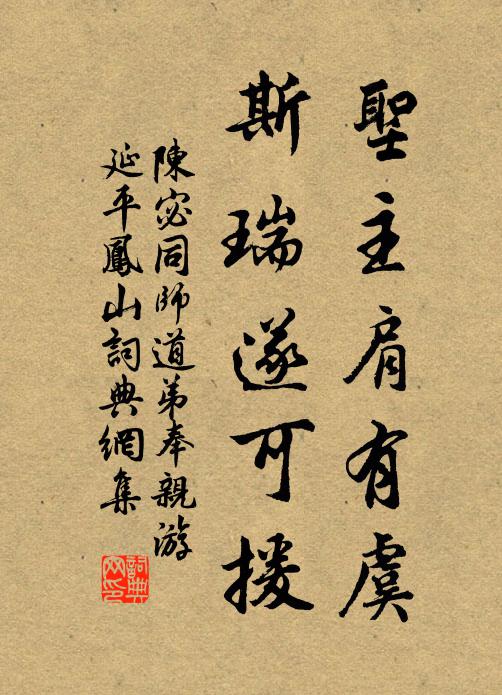 聖主肩有虞
斯瑞遂可援
陳宓同師道弟奉親游
延平鳳山詞典網集
詞典网印